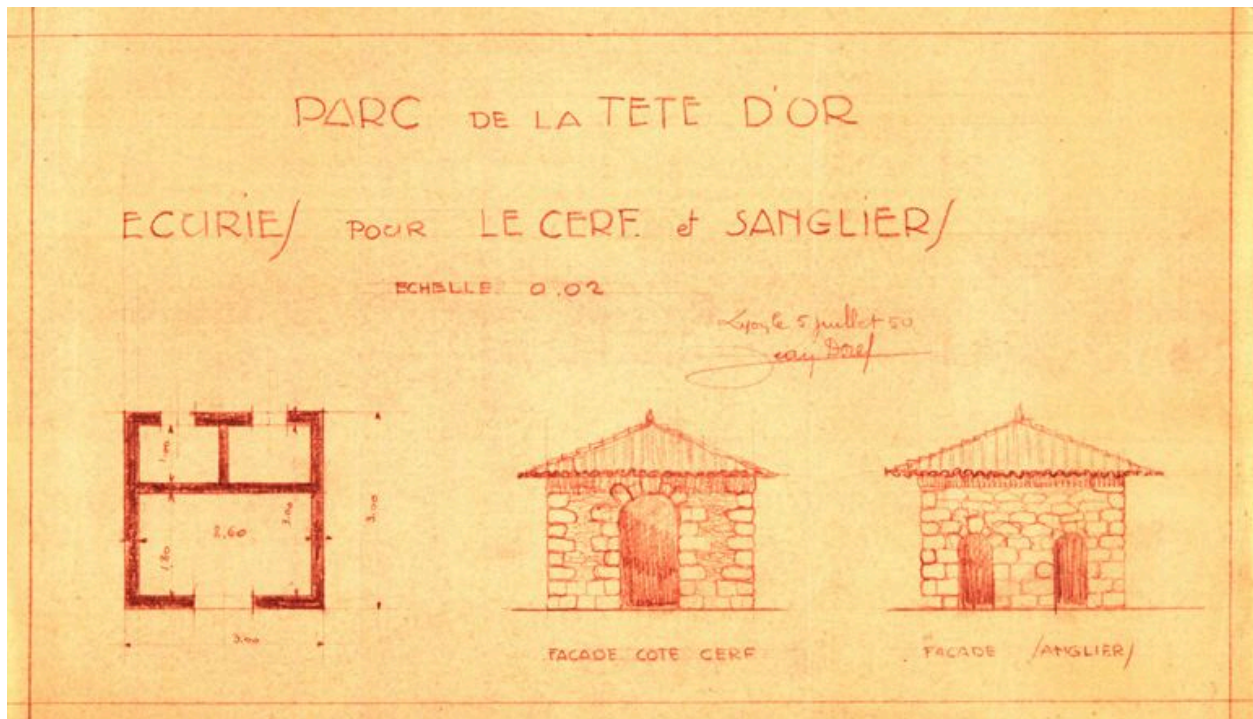 PARC DE LA TETE D'OR
ECURIES POUR LE CERF. et SANGLIERS
ECHELLE 0.02
Lyon, le 5 juillet 50
Jean
1,00
2,60
1,80
3.00
3.00
FACADE COTE CERF
FACADE SANGLIERS